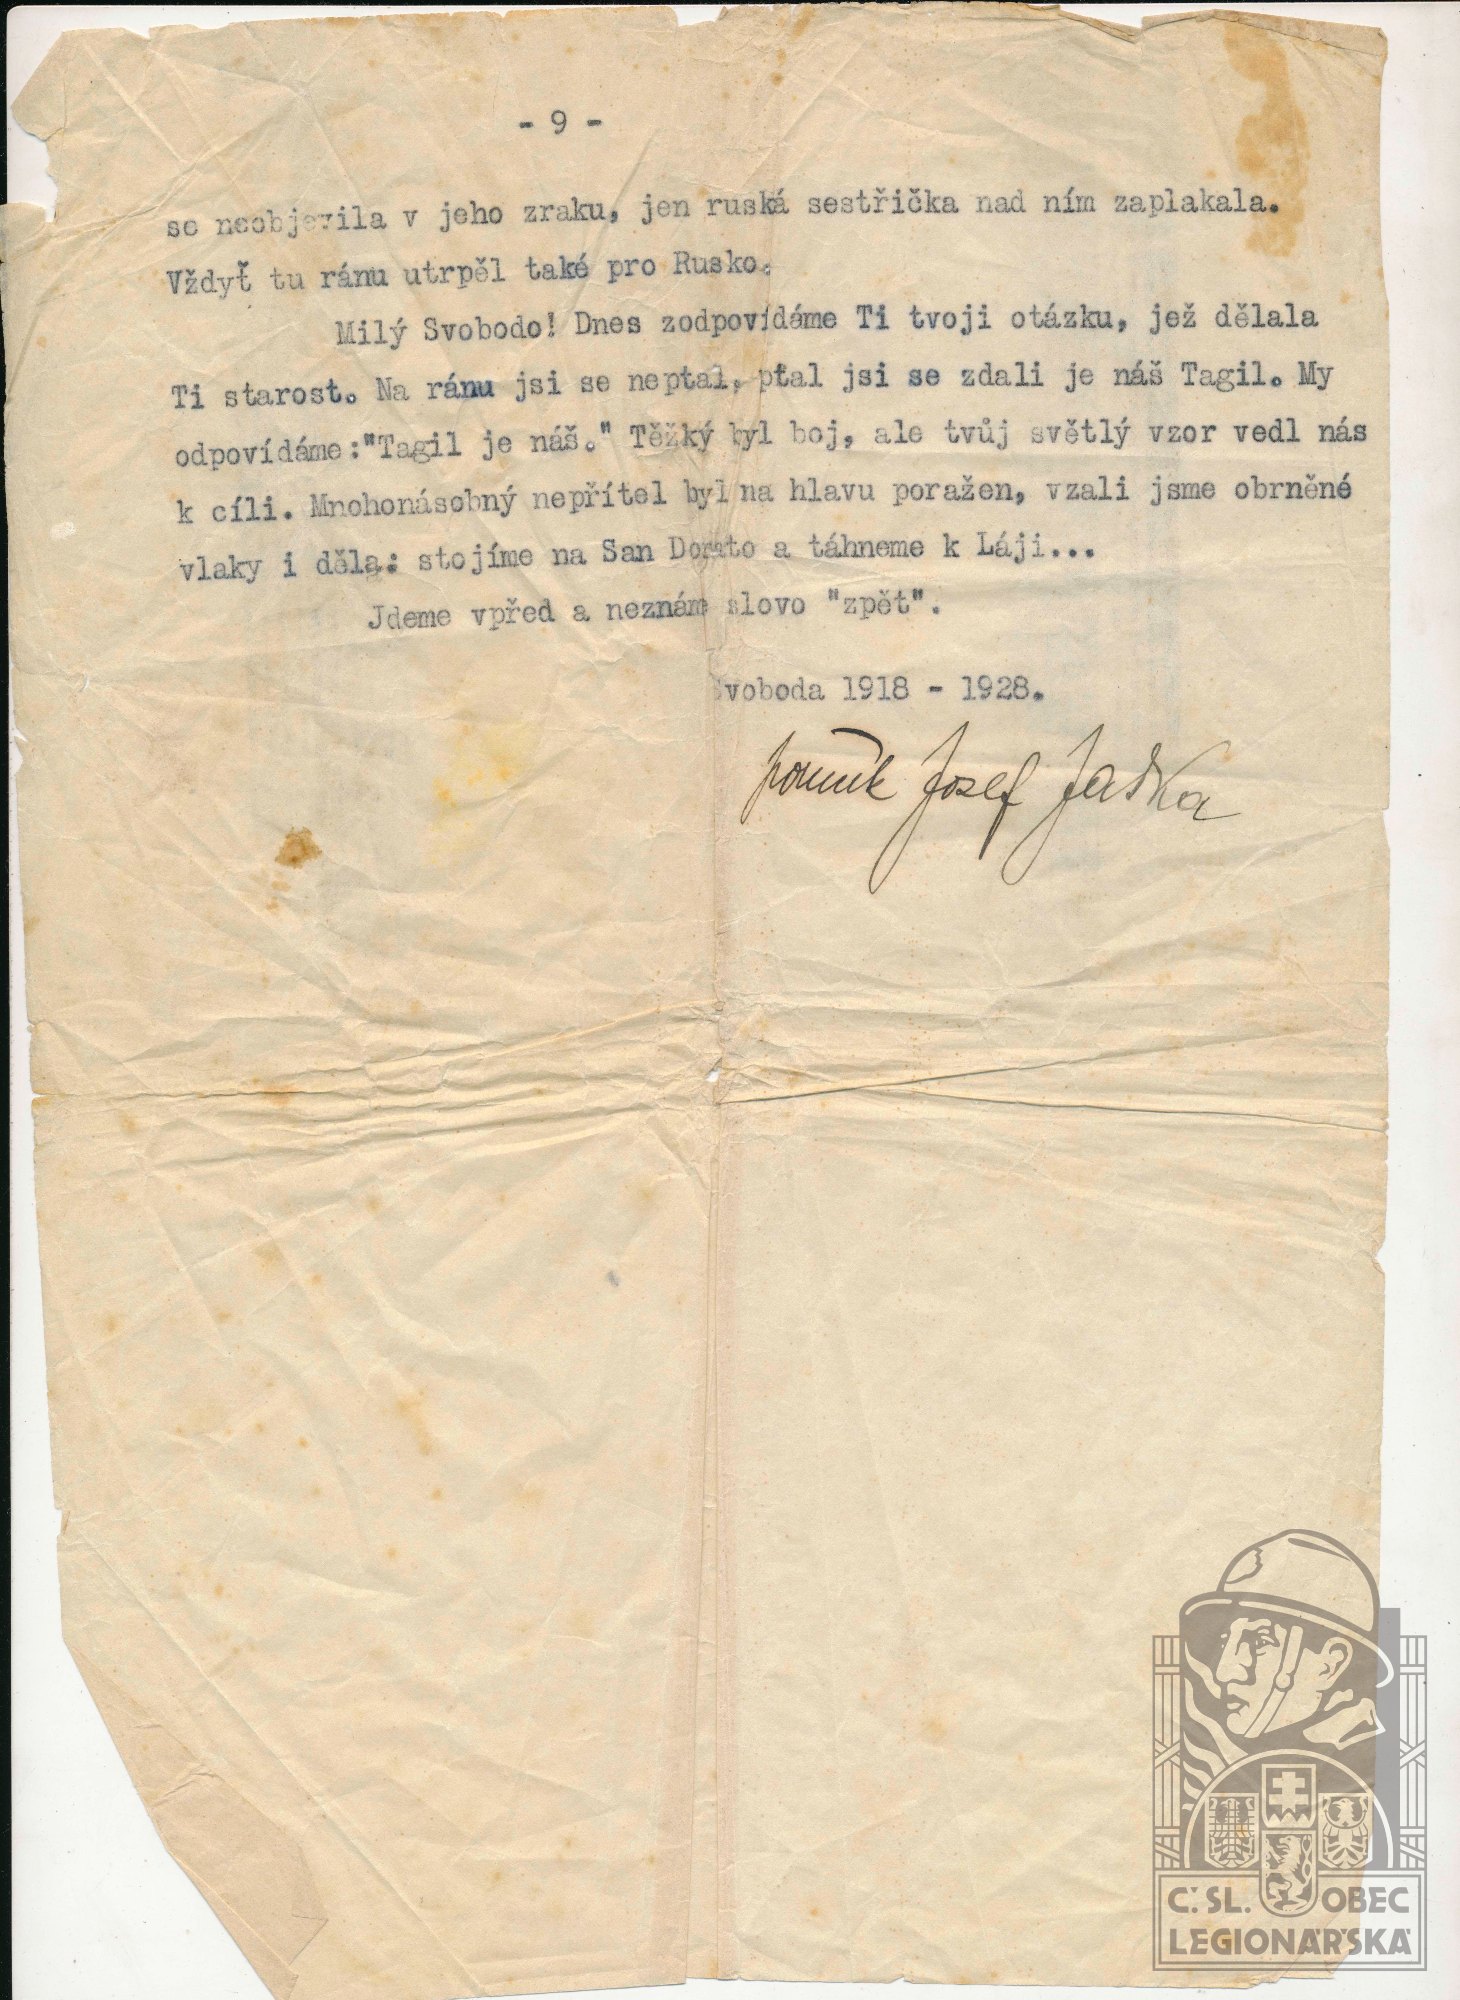 - 9 -
se neobjevila v jeho zraku, jen ruská sestřička nad ním zaplakala.
Vždyť tu ránu utrpěl také pro Rusko.
Milý Svobodo! Dnes zodpovídáme Ti tvoji otázku, jež dělala
Ti starost. Na ránu jsi se neptal, ptal jsi se zdali je náš Tagil. My
odpovídáme:"Tagil je náš." Těžký byl boj, ale tvůj světlý vzor vedl nás
k cíli. Mnohonásobný nepřítel byl na hlavu poražen, vzali jsme obrněné
vlaky i děla: stojíme na San Donato a táhneme k Láji...
Jdeme vpřed a neznám slovo "zpět".
Svoboda 1918 - 1928.
Josef Jaška
Č.SL. OBEC
LEGIONÁŘSKÁ